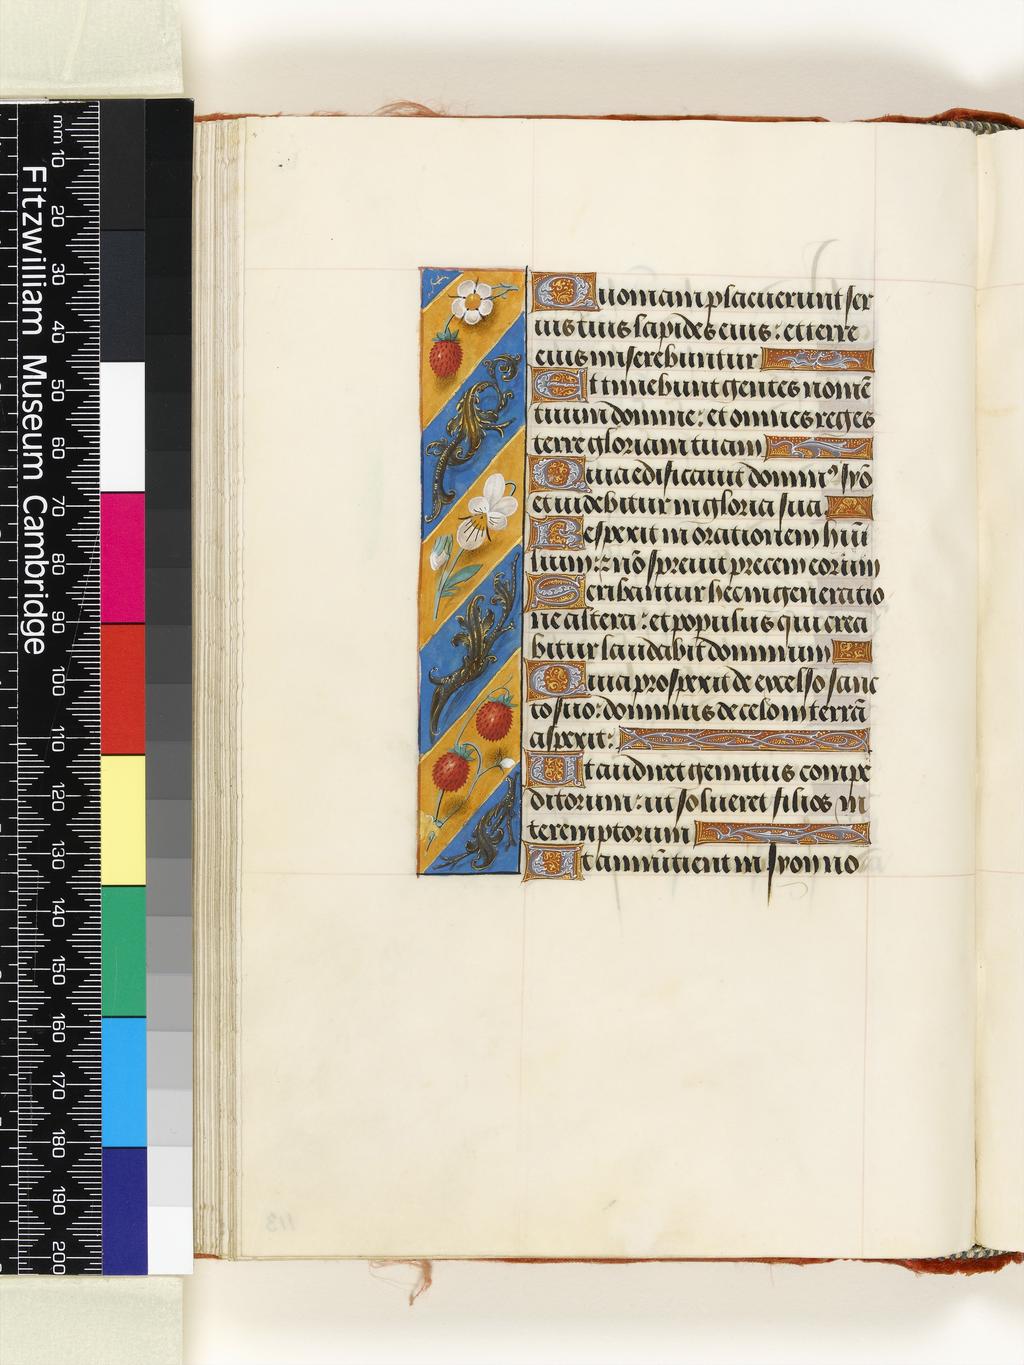 Fitzwilliam Museum Cambridge
mm 10 20 30 40 50 60 70 80 90 100 110 120 130 140 150 160 170 180 190 200
Quoniam placuerunt ser
uis tuis lapides eius : et terre
eius miserebuntur
Et timebunt gentes nomē
tuum domine : et omnes reges
terre gloriam tuam
Quia edificauit dominꝰ syō
et uidebitur in gloria sua.
Respexit in orationem hūi
lium : ⁊ nō spreuit precem eorum
Scribantur hec in generatio
ne altera : et populus qui crea
bitur laudabit dominum
Quia prospexit de excelso sanc
to suo : dominus de celo in terrā
aspexit :
Ut audiret gemitus compe
ditorum : ut solueret filios in
teremptorum
Ut annūtient in syon no
113